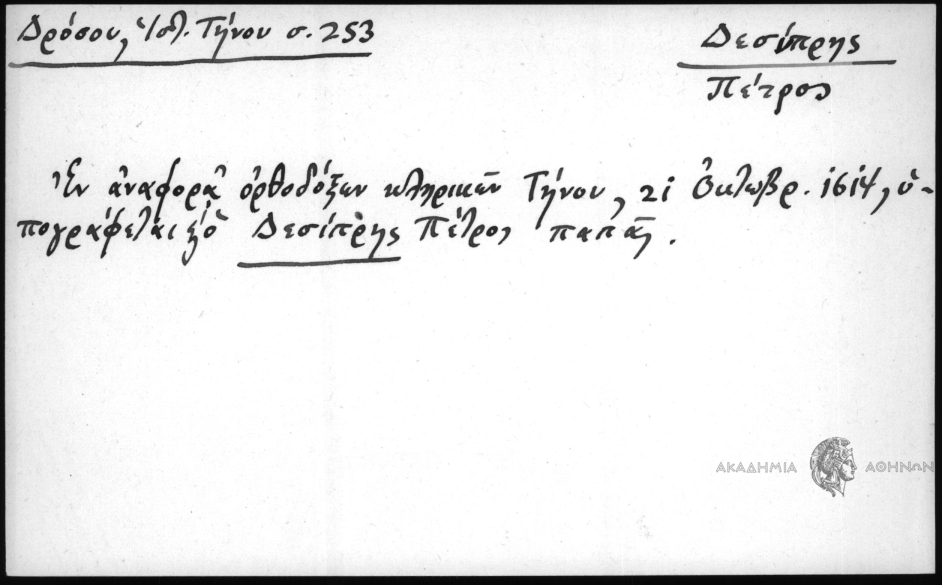 Δρόσου, Ἱστ. Τήνου σ. 253
Δεσίπρης
Πέτρος
Ἐν ἀναφορᾷ ὀρθοδόξων κληρικῶν Τήνου, 21 Ὀκτωβρ. 1614, ὑ-
πογράφεται ὁ Δεσίπρης Πέτρος παπᾶς.
ΑΚΑΔΗΜΙΑ ΑΘΗΝΩΝ